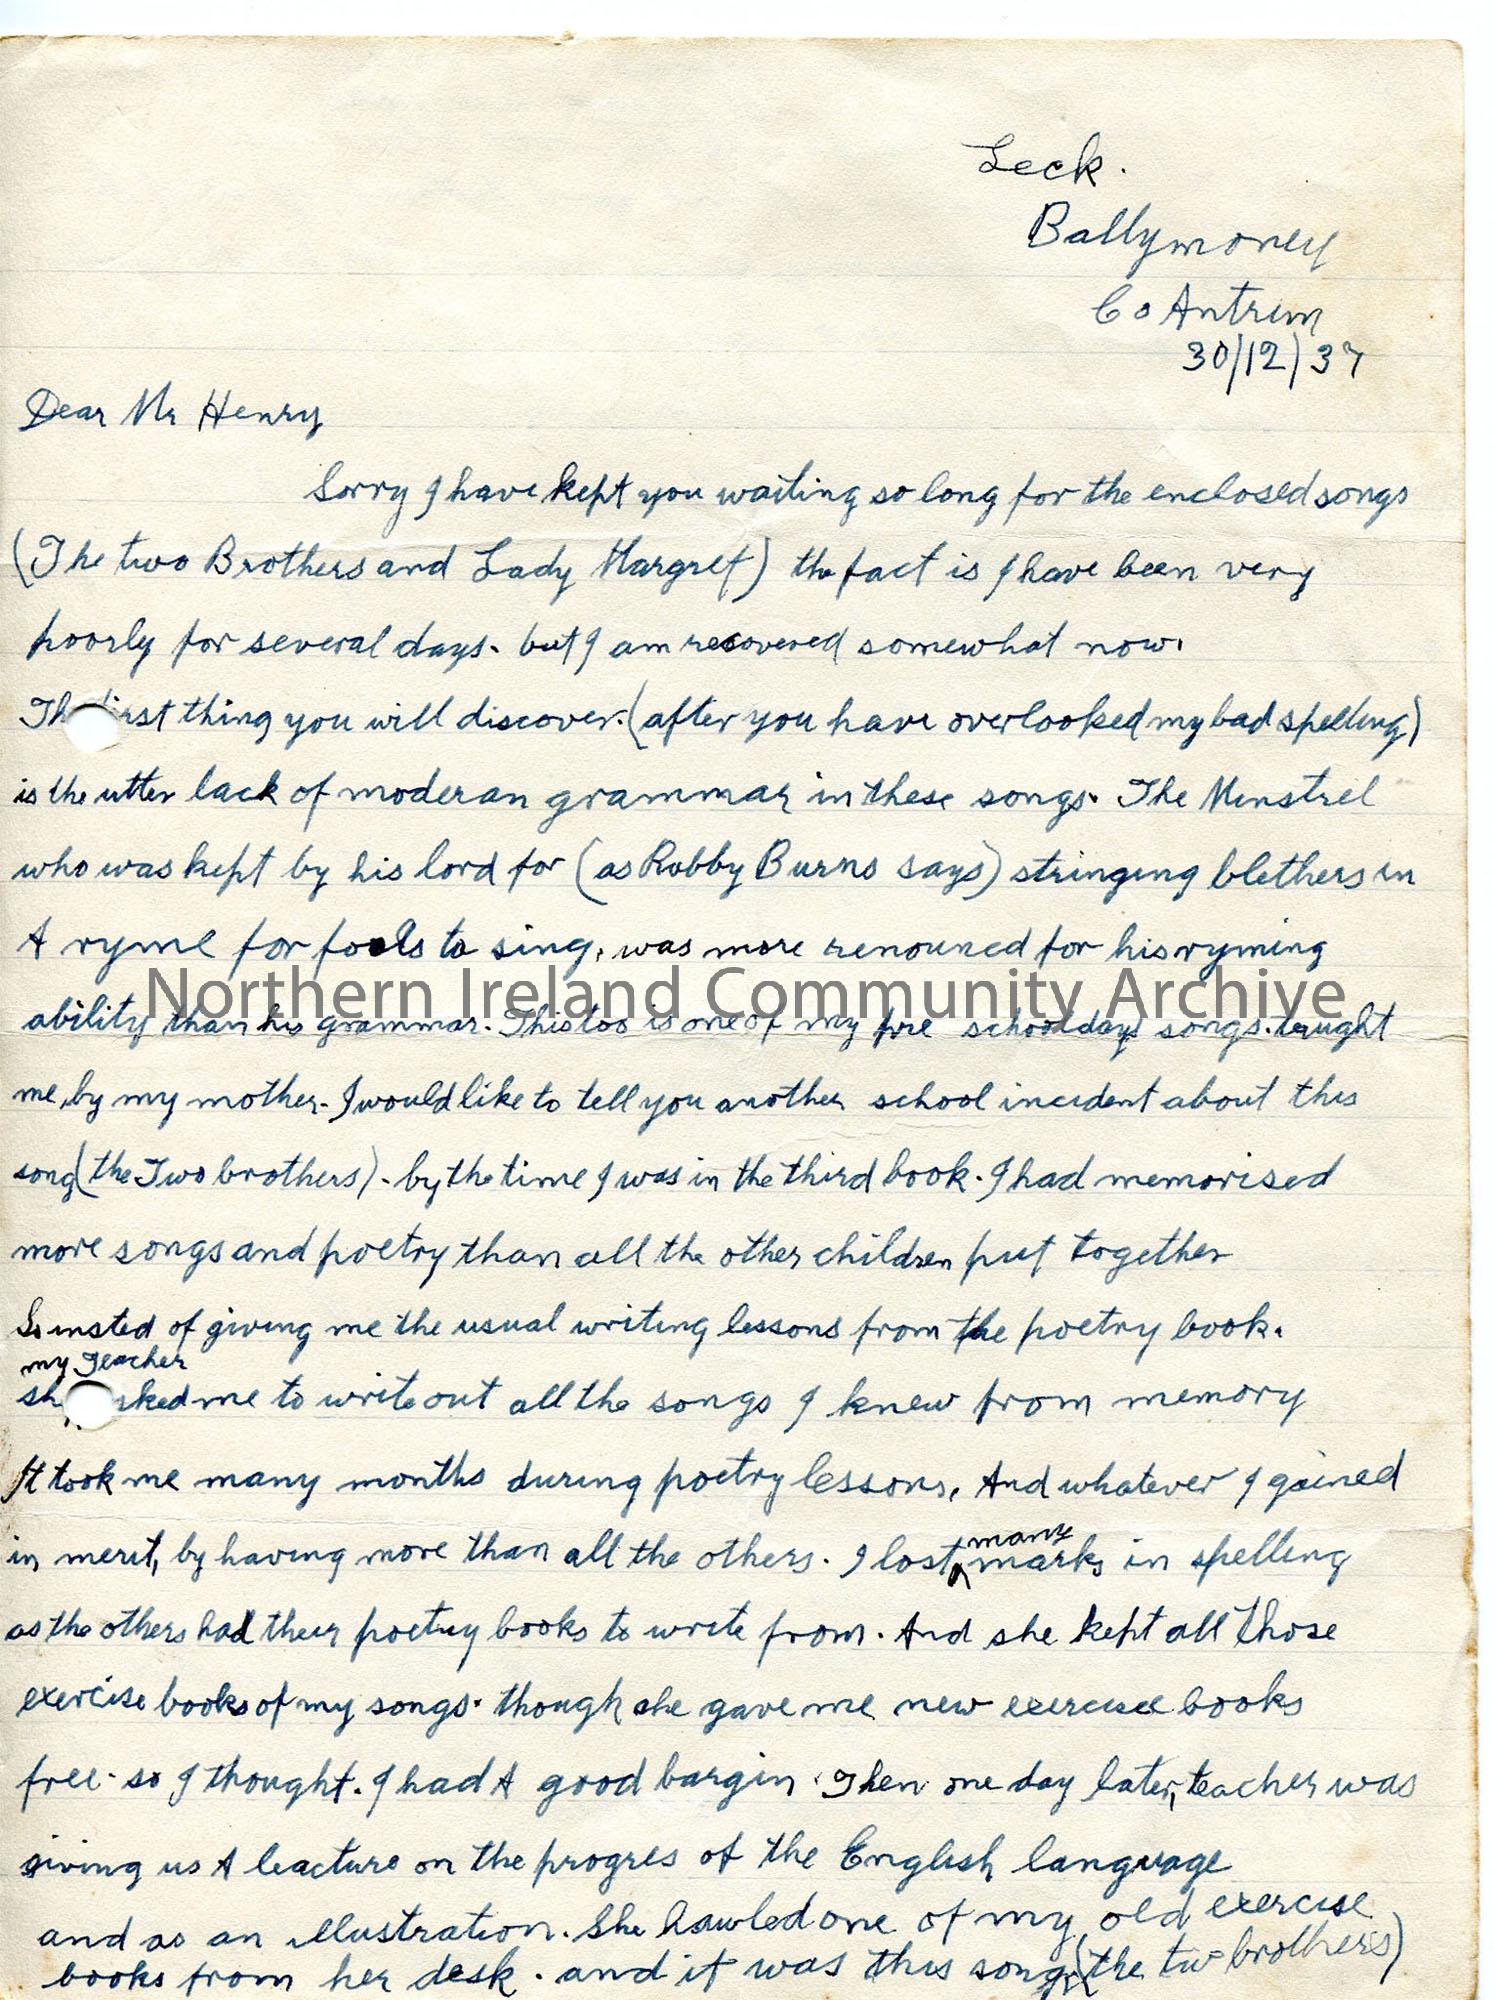 Leck.
Ballymoney
Co Antrim
30/12/37
Dear Mr Henry
Sorry I have kept you waiting so long for the enclosed songs
(The two Brothers and Lady Margret) the fact is I have been very
poorly for several days. but I am recovered somewhat now.
Th first thing you will discover. (after you have overlooked my bad spelling)
is the utter lack of moderan grammar in these songs. The Minstrel
who was kept by his lord for (as Robby Burns says) stringing blethers in
A ryme for fools to sing, was more renouned for his ryming
Northern Ireland Community Archive
ability than his grammar. This too is one of my pre schooldays songs. taught
me, by my mother. I would like to tell you another school incident about this
song (the Two brothers). by the time I was in the third book. I had memorised
more songs and poetry than all the other children put together
So insted of giving me the usual writing lessons from the poetry book.
my Teacher
sh asked me to write out all the songs I knew from memory
It took me many months during poetry lessons, And whatever I gained
in merit, by having more than all the others. I lost many marks in spelling
as the others had their poetry books to write from. And she kept all those
exercise books of my songs. though she gave me new exercise books
free. so I thought. I had A good bargin. Then one day later, teacher was
giving us A leacture on the progres of the English language
and as an illustration. She hawled one of my old exercise
books from her desk. and it was this song (the two brothers)